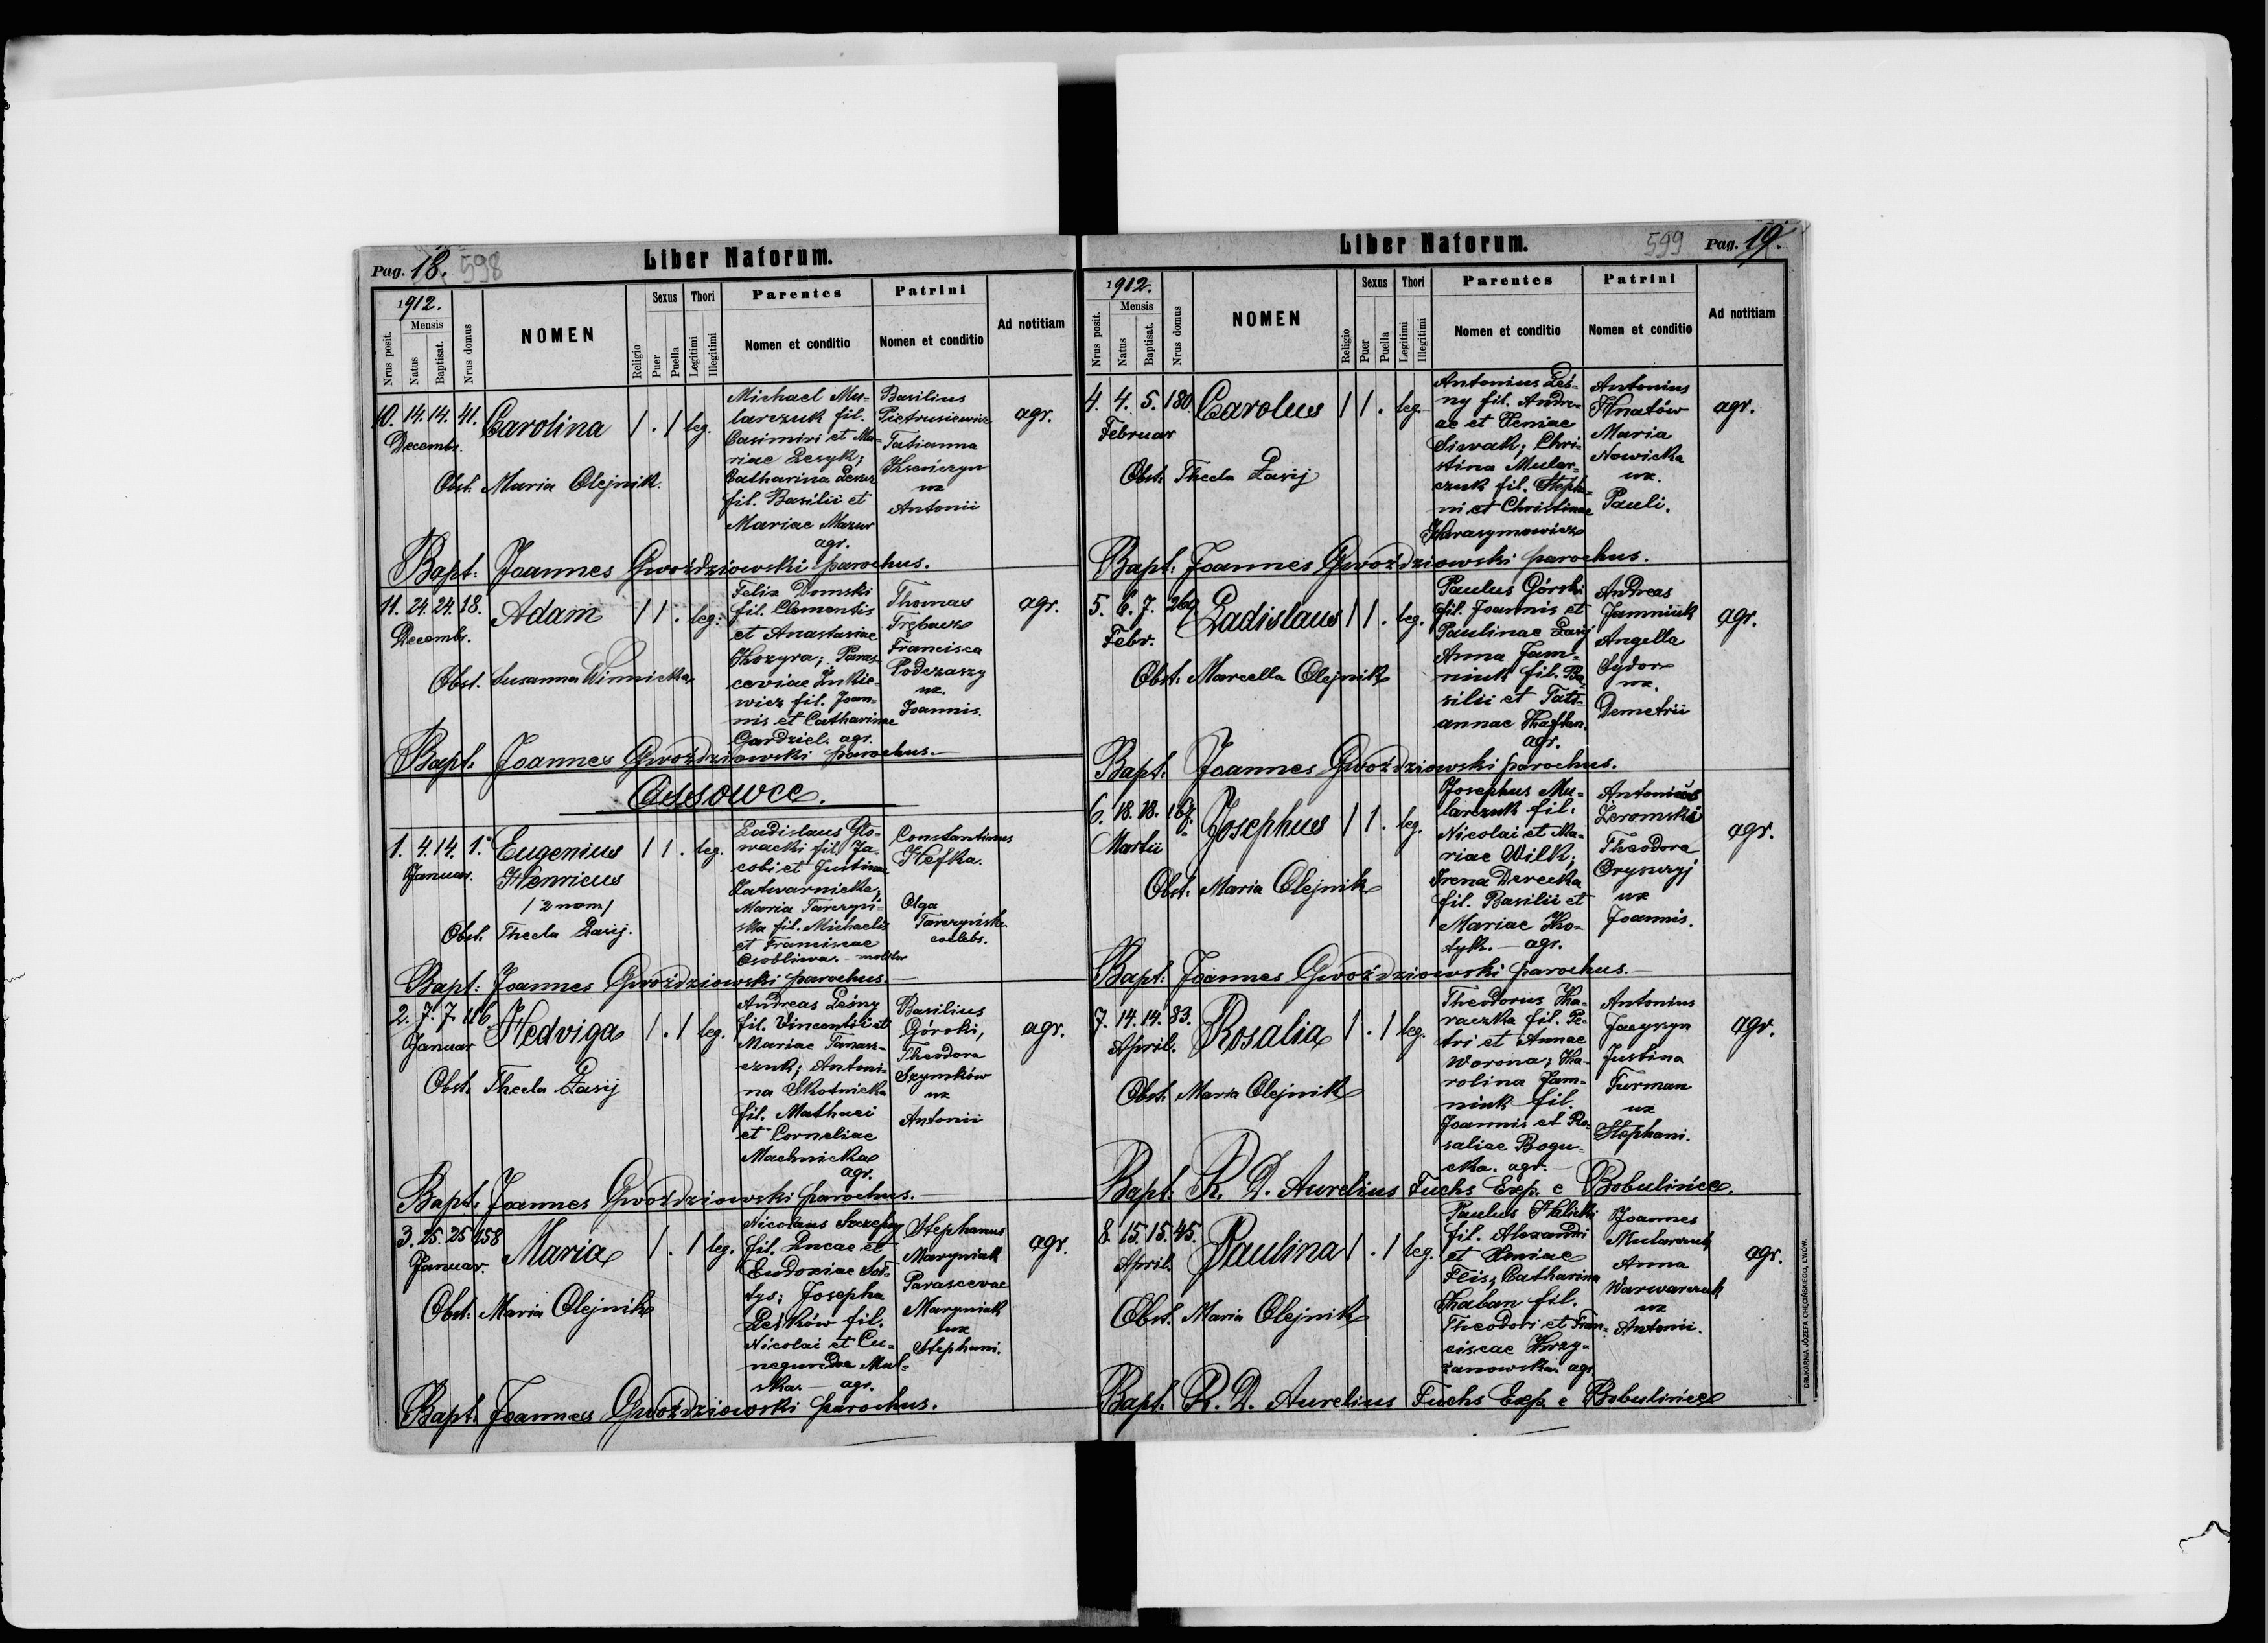 Pag. 18. 598
Liber Natorum.
1912.
Nrus posit.
Mensis
Natus
Baptisat.
Nrus domus
NOMEN
Religio
Sexus
Puer
Puella
Thori
Legitimi
Illegitimi
Parentes
Nomen et conditio
Patrini
Nomen et conditio
Ad notitiam
10. 14. 14. 41. Carolina 1 . 1 leg.
Decembr.
Obst. Maria Olejnik.
Michael Mu-
larczuk fil.
Casimiri et Ma-
riae Lesyk;
Catharina
fil. Basilii et
Mariae Mazur
agr.
Basilius
Pietrusiewicz
Tatianna
ux
Antonii
agr.
Bapt: Joannes Gwoździowski parochus.
11. 24. 24. 18. Adam 1 1 . leg:
Decembr.
Obst. Susanna Winnicka
Felix Domski
fil. Clementis
et Anastasiae
Kozyra; Paras-
ceviae Inkie-
wicz fil. Joan-
nis et Catharinae
Gardziel. agr.
Thomas
Trębacz
Francisca
Podczaszy
ux.
Joannis.
agr.
Bapt. Joannes Gwoździowski parochus.
Ossowce.
1. 4. 14. 1. Eugenius 1 1 . leg.
Januar. Henricus
/ 2 nom /
Obst. Thecla Zasij.
Ladislaus Gło-
wacki fil. Ja-
cobi et Justinae
Zatwarnicka;
Maria Tarczyń-
ska fil. Michaelis
et Franciscae
Osobliwa. - molitor
Constantinus
Hefka.
Olga
Tarczyńska
coelebs.
Bapt: Joannes Gwoździowski parochus.
2. 7. 7. 116. Hedviga 1 . 1 leg.
Januar
Obst. Thecla Zasij
Andreas Leśny
fil. Vincentii et
Mariae Panasz-
czuk; Antoni-
na Skotnicka
fil. Mathaei
et Corneliae
Machnicka
agr.
Basilius
Górski,
Theodora
Szymków
ux
Antonii
agr.
Bapt: Joannes Gwoździowski parochus.
3. 25. 25. 158 Maria 1 . 1 leg.
Januar.
Obst: Maria Olejnik
Nicolaus Szczepny
fil. Lucae et
Eudoxiae Soł-
tys; Josepha
Leśków fil.
Nicolai et Cu-
negundae Mul-
ska. - agr.
Stephanus
Maryniak
Parascevae
Maryniak
ux
Stephani.
agr.
Bapt. Joannes Gwoździowski parochus.
Liber Natorum.
599 Pag. 19.
1912.
Nrus posit.
Mensis
Natus
Baptisat.
Nrus domus
NOMEN
Religio
Sexus
Puer
Puella
Thori
Legitimi
Illegitimi
Parentes
Nomen et conditio
Patrini
Nomen et conditio
Ad notitiam
4. 4. 5. 180 Carolus 1 1 . leg.
Februar
Obst: Thecla Zasij
Antonius Leś-
ny fil. Andre-
ae et Xeniae
Siwak; Chri-
stina Mular-
czuk fil. Stepha-
ni et Christinae
Harasymowicz
Antonius
Hnatów
Maria
Nowicka
ux.
Pauli.
agr.
Bapt: Joannes Gwoździowski parochus.
5. 6. 7. 269. Ladislaus 1 1 . leg.
Febr.
Obst: Marcella Olejnik
Paulus Górski
fil. Joannis et
Paulinae Zasij
Anna Jam-
niuk fil. Ba-
silii et Tati-
annae Haftan.
agr.
Andreas
Jamniuk
Angella
Sydor
ux.
Demetrii
agr.
Bapt: Joannes Gwoździowski parochus.
6. 18. 18. Josephus 1 1 . leg.
Martii
Obst: Maria Olejnik
Josephus Mu-
larczuk fil:
Nicolai et Ma-
riae Wilk;
Irena Derecka
fil. Basilii et
Mariae Ko-
tyk. - agr.
Antonius
Żeromski
Theodora
Oryszczyj
ux
Joannis.
agr.
Bapt: Joannes Gwoździowski parochus.
7. 14. 14. 83. Rosalia 1 . 1 leg.
April.
Obst. Maria Olejnik
Theodorus Ha-
raczka fil. Pe-
tri et Annae
Worona; Ka-
rolina Jam-
niuk fil.
Joannis et Ro-
saliae Bogu-
cka. agr.
Antonius
Jacyszyn
Justina
Furman
ux
Stephani.
agr.
Bapt: R. D. Aurelius Fuchs Exp. e Bobulińce.
8. 15. 15. 45. Paulina 1 . 1 leg.
April.
Obst. Maria Olejnik
Paulus Halicki
fil. Alexandri
et Xeniae
Flis; Catharina
Haban fil.
Theodori et Fran-
ciscae Krzy-
żanowska. agr
Joannes
Mularczuk
Anna
Warwarczuk
ux
Antonii.
agr.
Bapt. R. D. Aurelius Fuchs Exp. e Bobulińce
DRUKARNIA JÓZEFA CHĘCIŃSKIEGO, LWÓW.